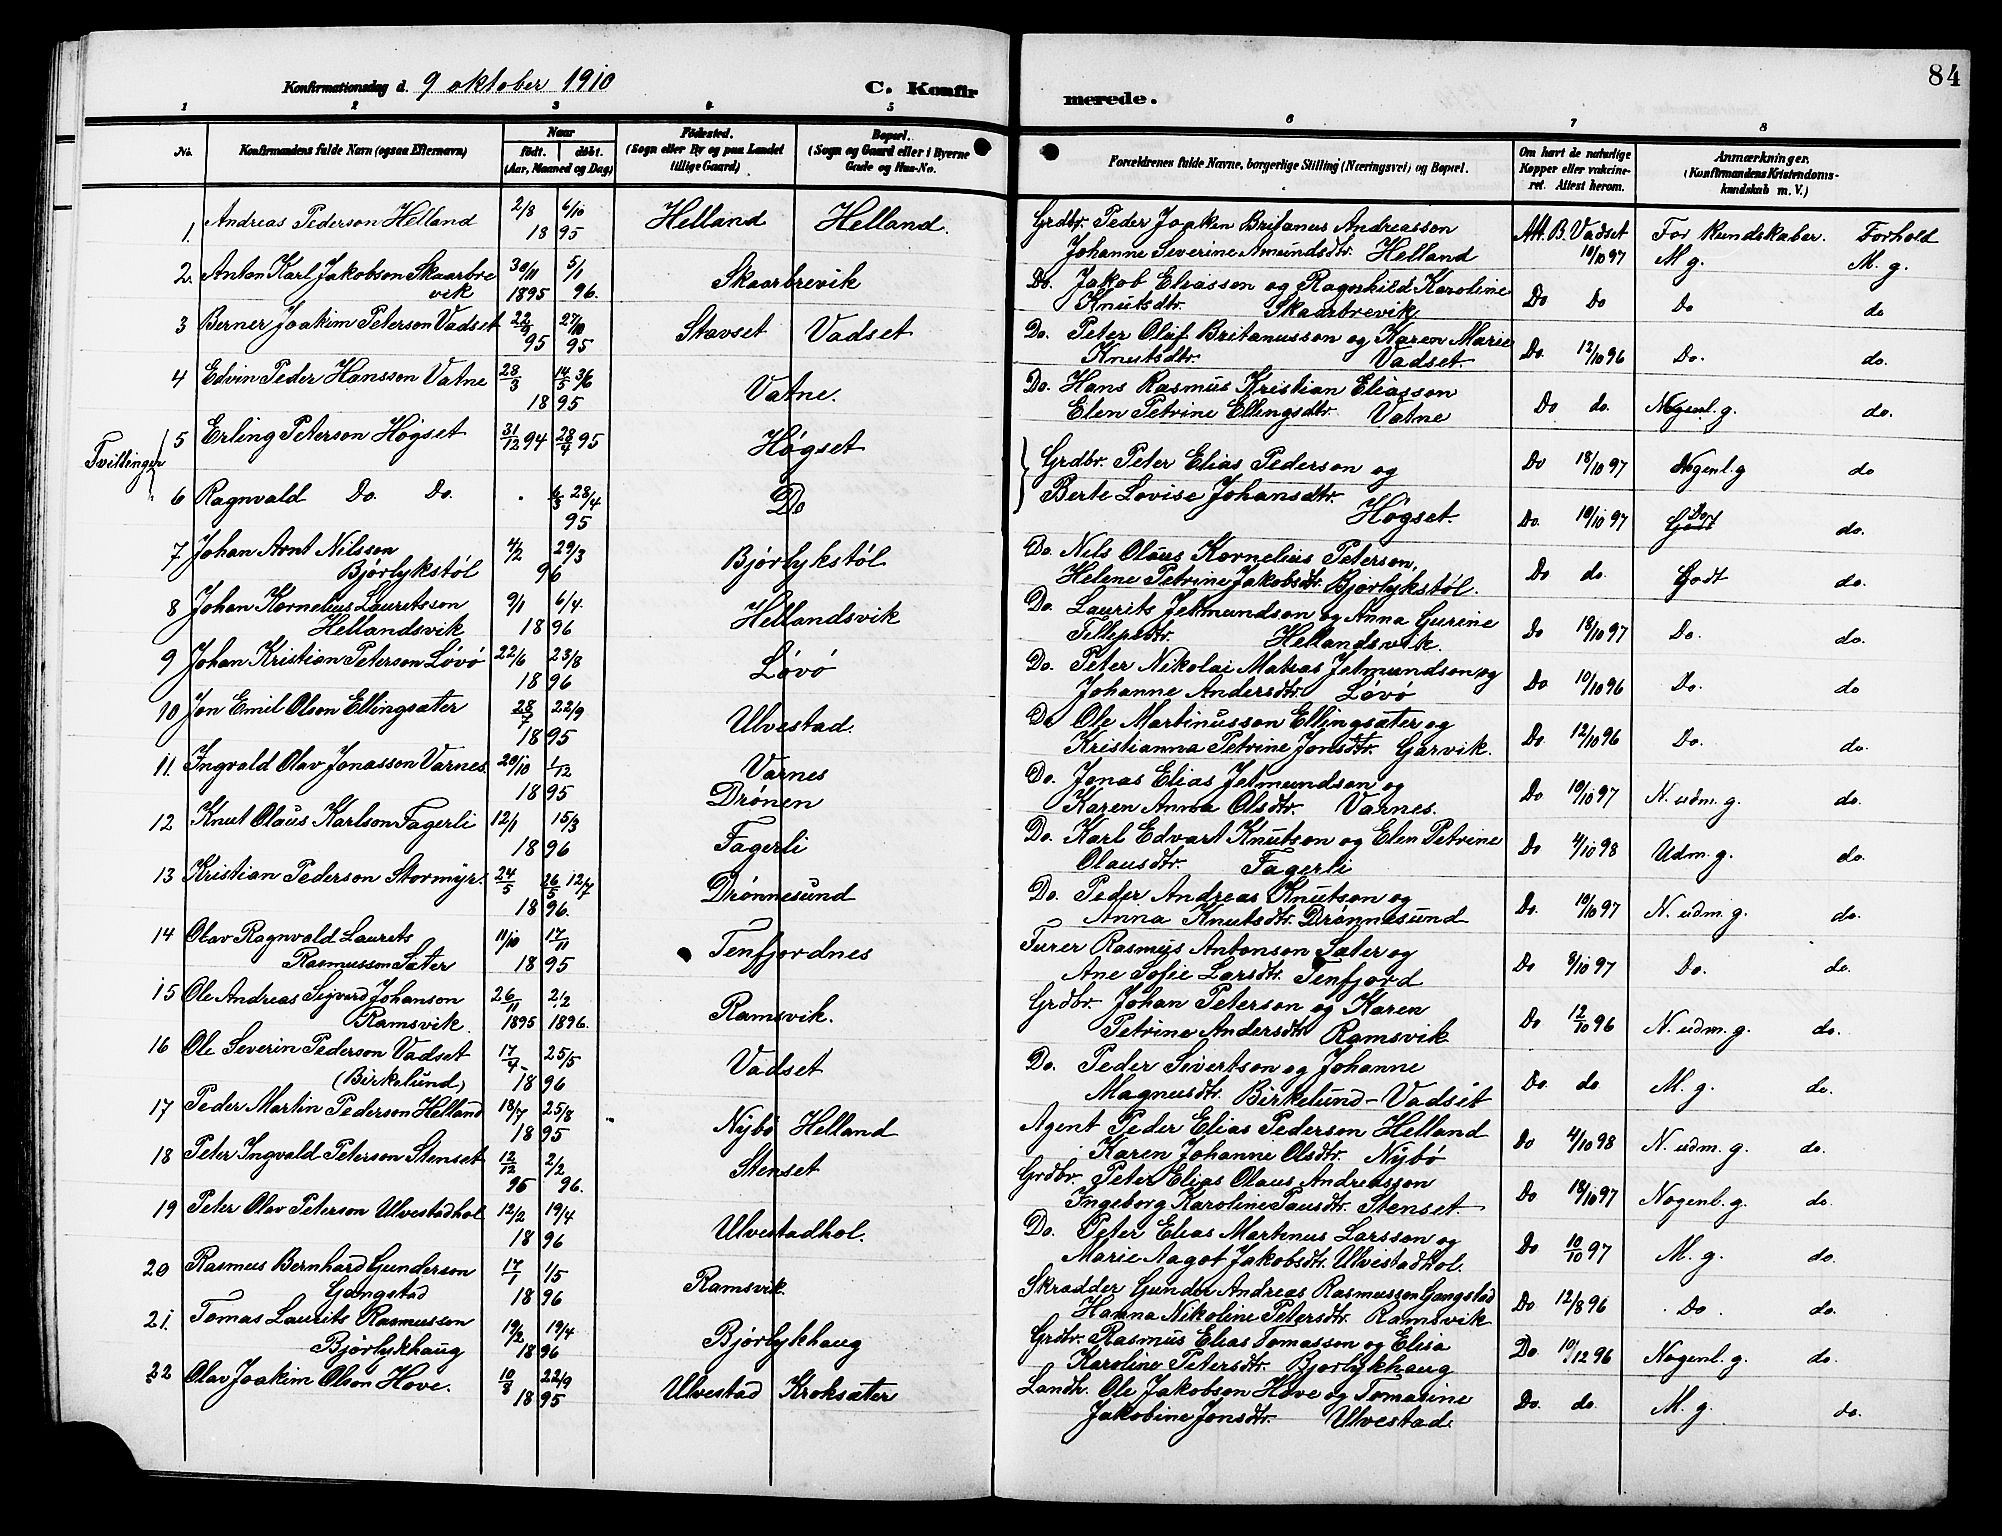 84
Konfirmationsdag d. 9 oktober 1910 C. Konfir merede.
1 2 3 4 5 6 7 8
No. Konfirmandens fulde Navn (ogsaa Efternavn) Naar født. døbt. (Aar, Maaned og Dag) Fødested. (Sogn eller By og paa Landet tillige Gaard) Bopæl. (Sogn og Gaard eller i Byerne Gade og Hus-No. Forældrenes fulde Navne, borgerlige Stilling (Næringsvei) og Bopæl. Om havt de naturlige Kopper eller vakcineret. Attest herom. Anmærkninger. (Konfirmandens Kristendomskundskab m. V.)
1. Andreas Pederson Helland 2/8 6/10 1895 Helland Helland. Grdbr. Peder Joaken Britanus Andreasson Att. B. Vadset For Kundskaber. Forhold
Johanne Severine Amundsdtr. Helland 19/10 97 M g. M. g.
2. Anton Karl Jakobson Skaarbre 30/11 5/1 Skaarbrevik Do. Jakob Eliasson og Ragnhild Karoline
vik 1895 96. Knutsdtr. Skaarbrevik Do Do Do do
3 Berner Joakim Peterson Vadset 22/9 27/10 Stavset Vadset Do. Peter Olaf Britanusson og Karen Marie
95 95 Knutsdtr. Vadset. Do. 12/10 96 Do. do.
4 Edvin Peder Hansson Vatne 28/3 14/5 3/6 Vatne. Do. Hans Rasmus Kristian Eliasson
1895 Elen Petrine Ellingsdtr. Vatne Do do. Nogenl. g. do.
Tvillinger
5 Erling Peterson Høgset 31/12 94 28/4 95 Høgset Grdbr. Peter Elias Pederson og Do 18/10 97 Nogenl. g do
6 Ragnvald Do. Do. 28/4 Do Berte Lovise Johansdtr.
95 Høgset. Do. 19/10 97 Godt Do. do.
7 Johan Arnt Nilsson 4/2 29/3 Bjørlykstøl Do. Nils Olaus Kornelius Peterson,
Bjørlykstøl 96 Helene Petrine Jakobsdtr. Bjørlykstøl. Do do. Godt do.
8 Johan Kornelius Lauritsson 9/1 6/4. Hellandsvik Do. Laurits Jetmundson og Anna Gurine
Hellandsvik 1896 Tellefsdtr. Hellandsvik. Do 18/10 97 Do. do.
9 Johan Kristian Peterson Løvø 22/6 23/8 Løvø Do. Peter Nikolai Matias Jetmundson og
1896 Johanne Andersdtr. Løvø Do 10/10 96 Do. do
10 Jon Emil Olson Ellingsæter 28/7 22/9 Ulvestad. Do Ole Martinusson Ellingsæter og
1895 Kristianna Petrine Jonsdtr. Garvik. Do 12/10 96 Do. do.
11. Ingvald Olav Jonasson Varnes. 20/10 1/12 Varnes Do. Jonas Elias Jetmundson og
1895 Drønen Karen Anna Olsdtr. Varnes. Do 19/10 97 N. udm. g. do.
12 Knut Olaus Karlson Fagerli 12/1 15/3 Fagerli Do. Karl Edvart Knutson og Elen Petrine
1896 Olausdtr. Fagerli Do 4/10 98 Udm. g. do.
13 Kristian Pederson Stormyr. 24/5 26/5 12/7 Drønnesund Do. Peder Andreas Knutson og
1896. Anna Knutsdtr. Drønnesund Do. 19/10 97 N. udm. g. do.
14 Olav Ragnvald Laurits 11/10 17/11 Tenfjordnes Furer Rasmus Antonson Sæter og
Rasmusson Sæter 1895 Ane Sofie Larsdtr. Tenfjord Do 8/10 97 Do. do.
15 Ole Andreas Sigvard Johanson 26/11 2/2 Ramsvik. Grdbr. Johan Peterson og Karen
Ramsvik. 1895 1896. Petrine Andersdtr. Ramsvik Do 12/10 96 N. udm. g. do.
16 Ole Severin Pederson Vadset 17/4 25/5 Vadset Do. Peder Sivertson og Johanne
(Birkelund) 1896 Magnusdtr. Birkelund - Vadset Do. do M. g. do.
17 Peder Martin Pederson Helland 18/7 25/8 Nybø Helland Agent Peder Elias Pederson Helland
1895 Karen Johanne Olsdtr. Nybø Do 4/10 98 N. udm. g. do.
18 Peter Ingvald Peterson Stenset 12/12 2/2 Stenset Grdbr. Peter Elias Olaus Andreasson
95 96. Ingeborg Karoline Paulsdtr. Stenset. Do 18/10 97 Nogenl. g. do.
19 Peter Olav Peterson Ulvestadhol 12/2 19/4 Ulvestadhol. Do. Peter Elias Martinus Larsson og
1896 Marie Aagot Jakobsdtr. Ulvestadhol. Do 10/10 97 M. g. do.
20 Rasmus Bernhard Gunderson 17/1 1/5 Ramsvik. Skrædder Gunder Andreas Rasmusson Gangstad
Gangstad 1896 Hanna Nikoline Petersdtr. Ramsvik Do 12/8 96 Do. do.
21. Tomas Laurits Rasmusson 19/2 19/4 Bjørlykhaug Grdbr. Rasmus Elias Tomasson og Elisa
Bjørlykhaug 1896 Karoline Petersdtr. Bjørlykhaug Do. 10/12 96 Nogenl. g. do.
22 Olav Joakim Olson Hove. 10/8 22/9 Ulvestad Kroksæter Landh. Ole Jakobson Hove og Tomasine
1895 Jakobine Jonsdtr. Ulvestad. Do. do. M. g. do.